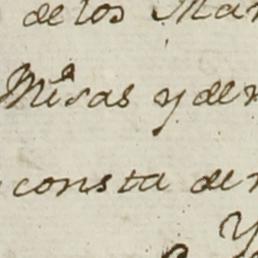 de los Mar
Misas y de
consta de
Y